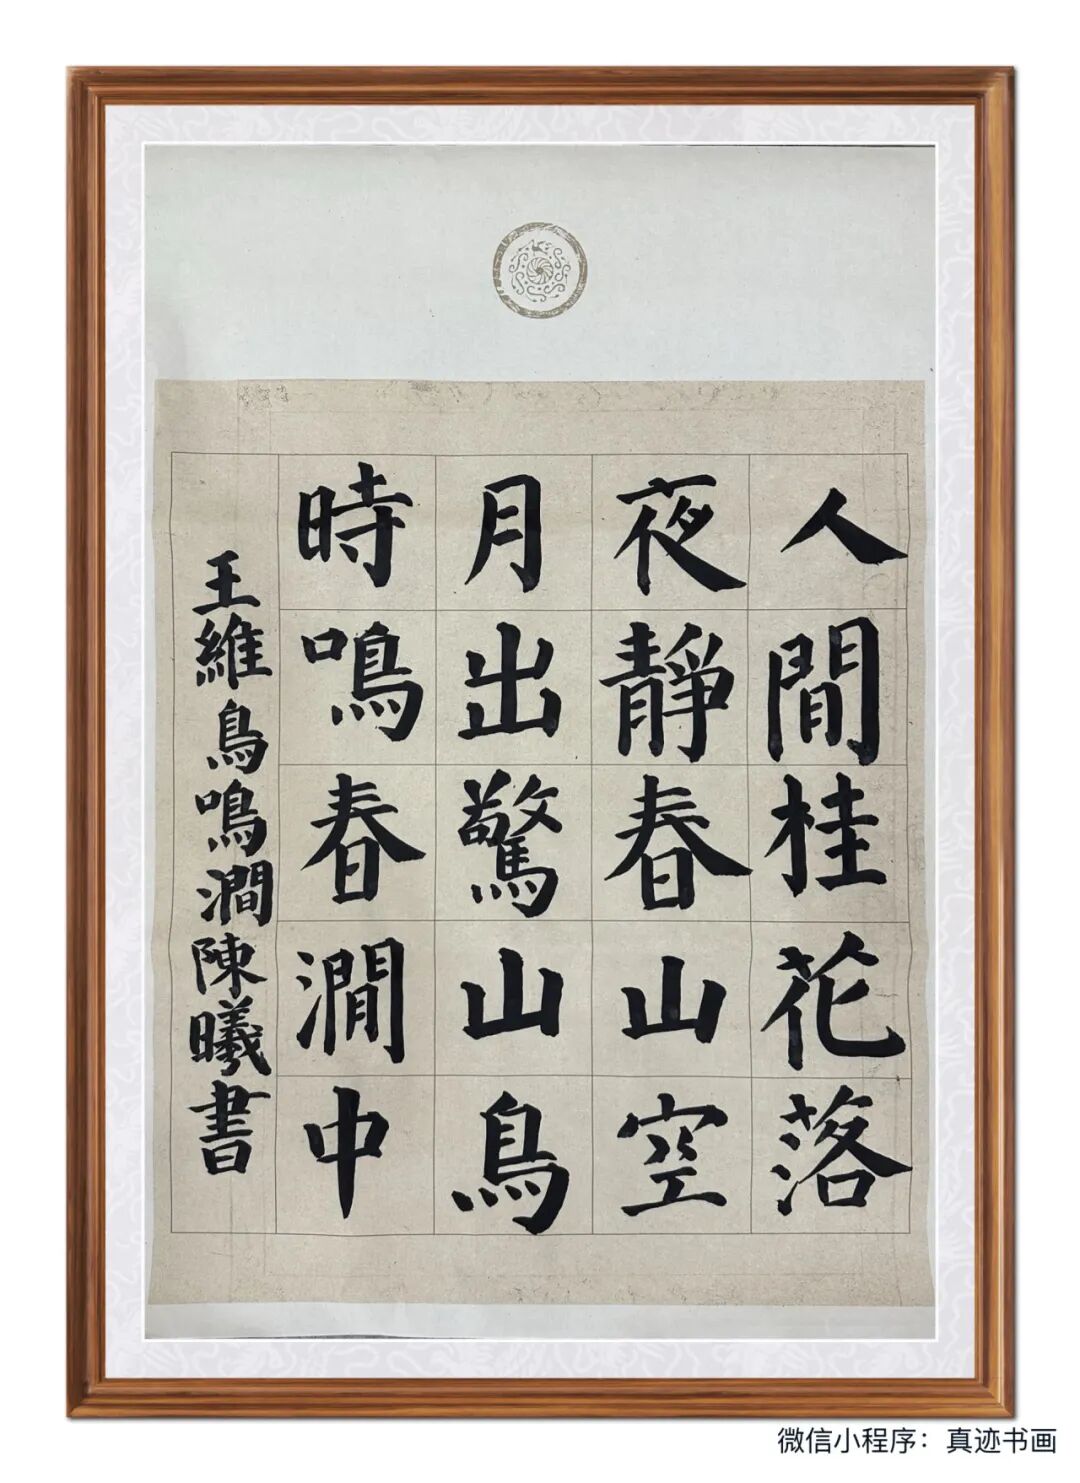 人閒桂花落
夜靜春山空
月出驚山鳥
時鳴春澗中
王維鳥鳴澗陳曦書
微信小程序：真迹书画